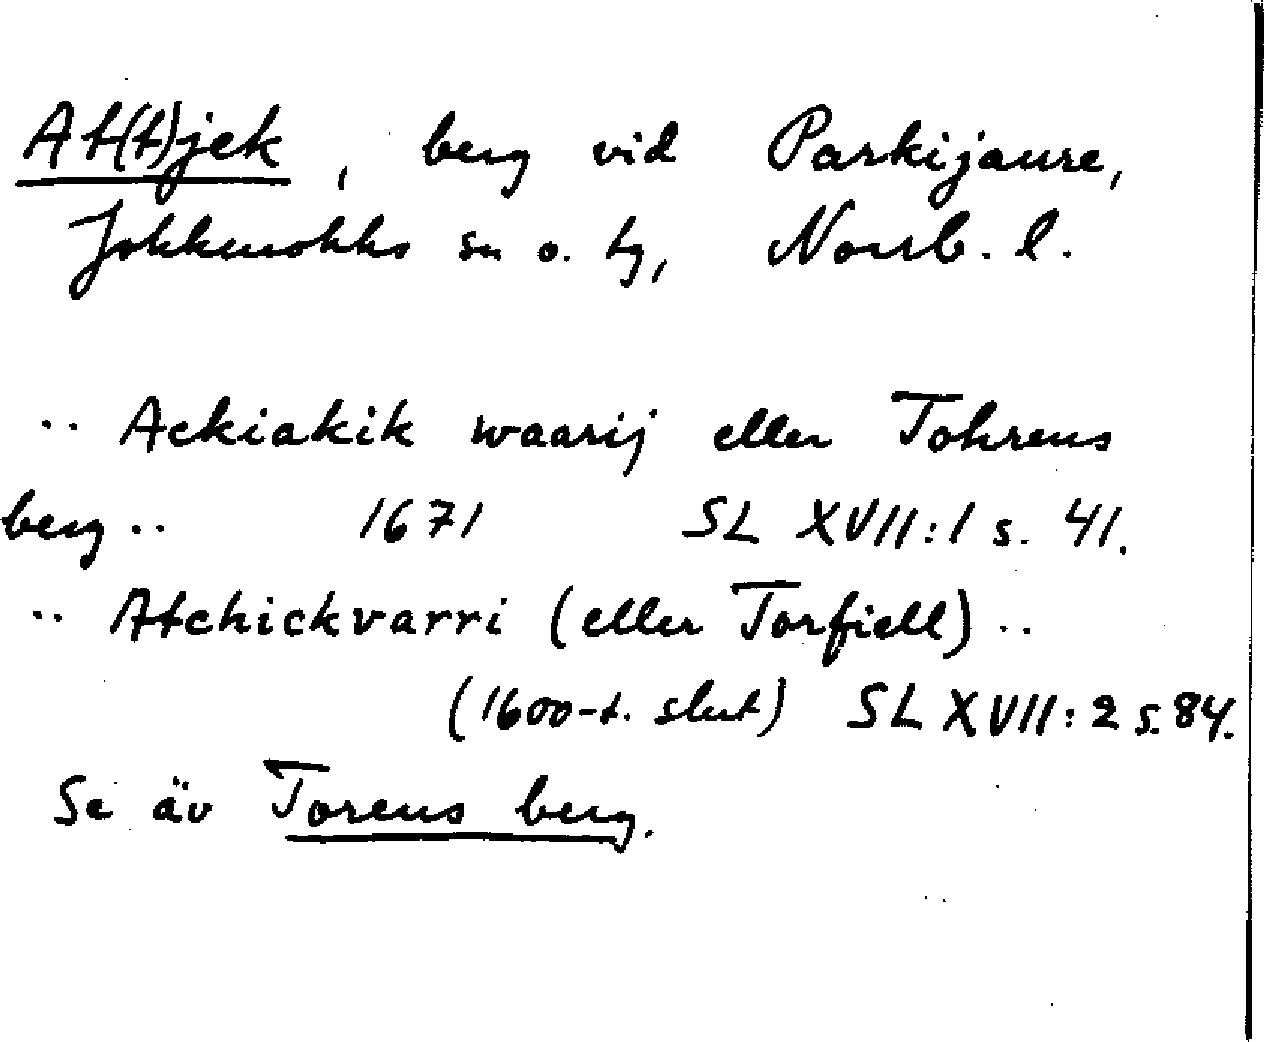 At(t)jek, berg vid Parkijaure,
Jokkmokks sn o. tg, Norrb. l.
.. Ackiakik waarij eller Tohrens
berg .. 1671 SL XVII:1 s. 41.
.. Atchickvarri (eller Torfiell) ..
(1600-t. slut) SL XVII:2 s. 84.
Se äv Torens berg.